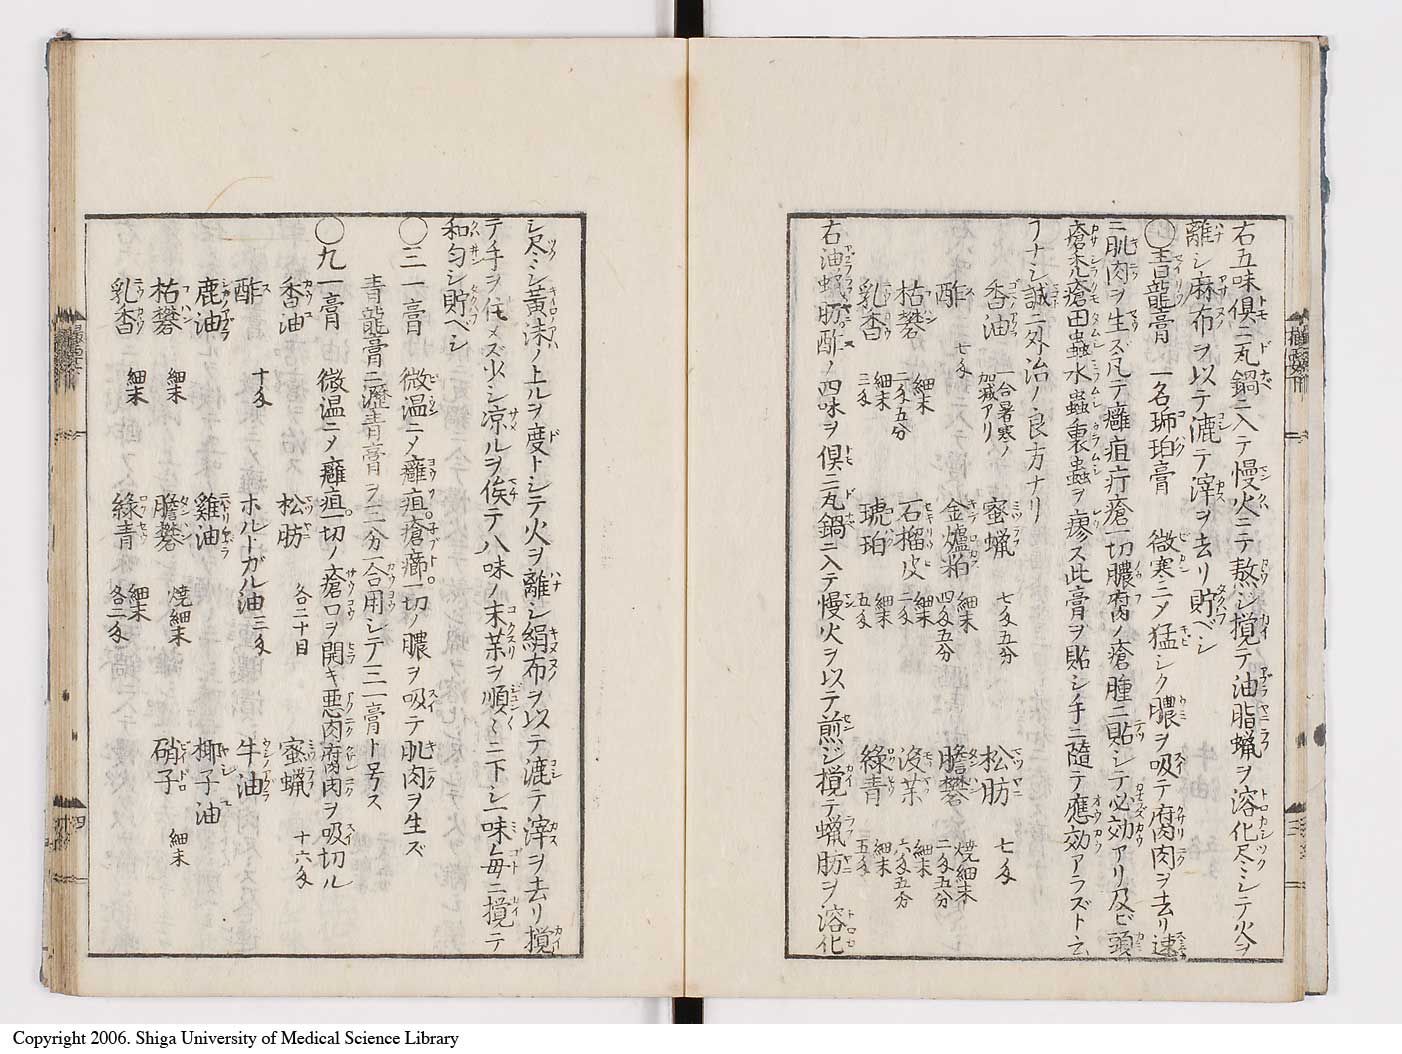 右五味倶ニ瓦鍋ニ入テ慢火ニテ熬ジ攪テ油脂蝋ヲ溶化尽ミシテ火ヲ
離シ麻布ヲ以テ漉テ滓ヲ去リ貯ベシ
〇青龍膏 一名琥珀膏 微寒ニメ猛シク膿ヲ吸テ腐肉ヲ去リ速
ニ肌肉ヲ生ズ凡テ癰疽疔瘡一切膿腐ノ瘡腫ニ貼シテ必効アリ及ビ頭
瘡禿瘡田蟲水蟲裏蟲ヲ療ス此膏ヲ貼シ手ニ隨テ應効アラズト云
フナシ誠ニ外治ノ良方ナリ
香油 一合暑寒ノ加減アリ 蜜蝋 七匁五分 松肪 七匁
酢 七匁 金爐粕 細末 四匁五分 膽礬 焼細末 二匁五分
枯礬 細末 二匁五分 石榴皮 細末 二匁 没薬 細末 六匁五分
乳香 細末 三匁 琥珀 細末 五匁 綠青 細末 五匁
右油蝋肪酢ノ四味ヲ倶ニ瓦鍋ニ入テ慢火ヲ以テ煎ジ攪テ蝋肪ヲ溶化
シ尽ミシ黄沫ノ上ルヲ度トシテ火ヲ離シ絹布ヲ以テ漉テ滓ヲ去リ攪
テ手ヲ住メズ少シ凉ルヲ俟テ八味ノ末薬ヲ順ミニ下シ一味毎ニ攪テ
和匀シ貯ベシ
〇三一膏 微温ニメ癰疽瘡癤一切ノ膿ヲ吸テ肌肉ヲ生ズ
青龍膏ニ瀝青膏ヲ三分一合用シテ三一膏ト号ス
〇九一膏 微温ニメ癰疽一切ノ瘡口ヲ開キ悪肉腐肉ヲ吸切ル
香油 松肪 各二十目 蜜蝋 十六匁
酢 十匁 ホルトガル油 三匁 牛油
鹿油 雞油 椰子油
枯礬 細末 膽礬 焼細末 硝子 細末
乳香 細末 綠青 細末 各二匁
Copyright 2006. Shiga University of Medical Science Library